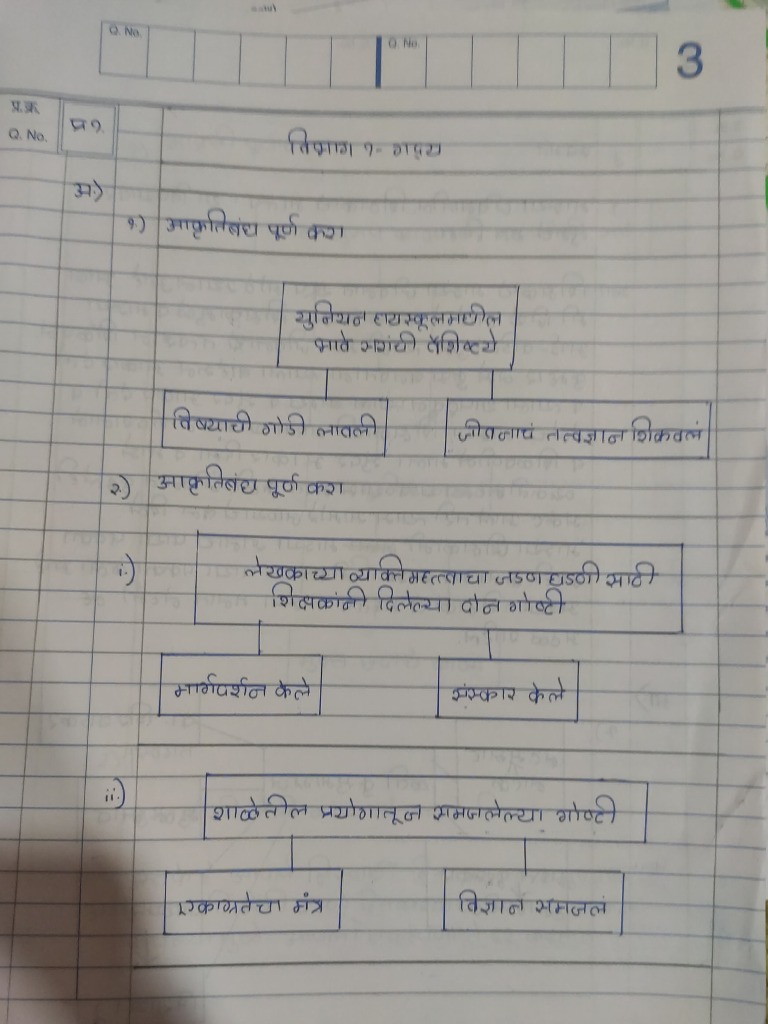 Q. No.
Q. No.
3
प्र.क्र.
Q. No.
प्र१.
विभाग १- गद्य
अ.)
१.) आकृतिबंध पूर्ण करा
युनियन हायस्कूलमधील
भावे सरांची वैशिष्टये
विषयाची गोडी लावली
जीवनाचं तत्वज्ञान शिकवलं
२.) आकृतिबंध पूर्ण करा
i.) लेखकाच्या व्यक्तिमहत्वाचा जडणघडणी साठी
शिक्षकांनी दिलेल्या दोन गोष्टी
मार्गदर्शन केले
संस्कार केले
ii.) शाळेतील प्रयोगातून समजलेल्या गोष्टी
एकाग्रतेचा मंत्र
विज्ञान समजलं